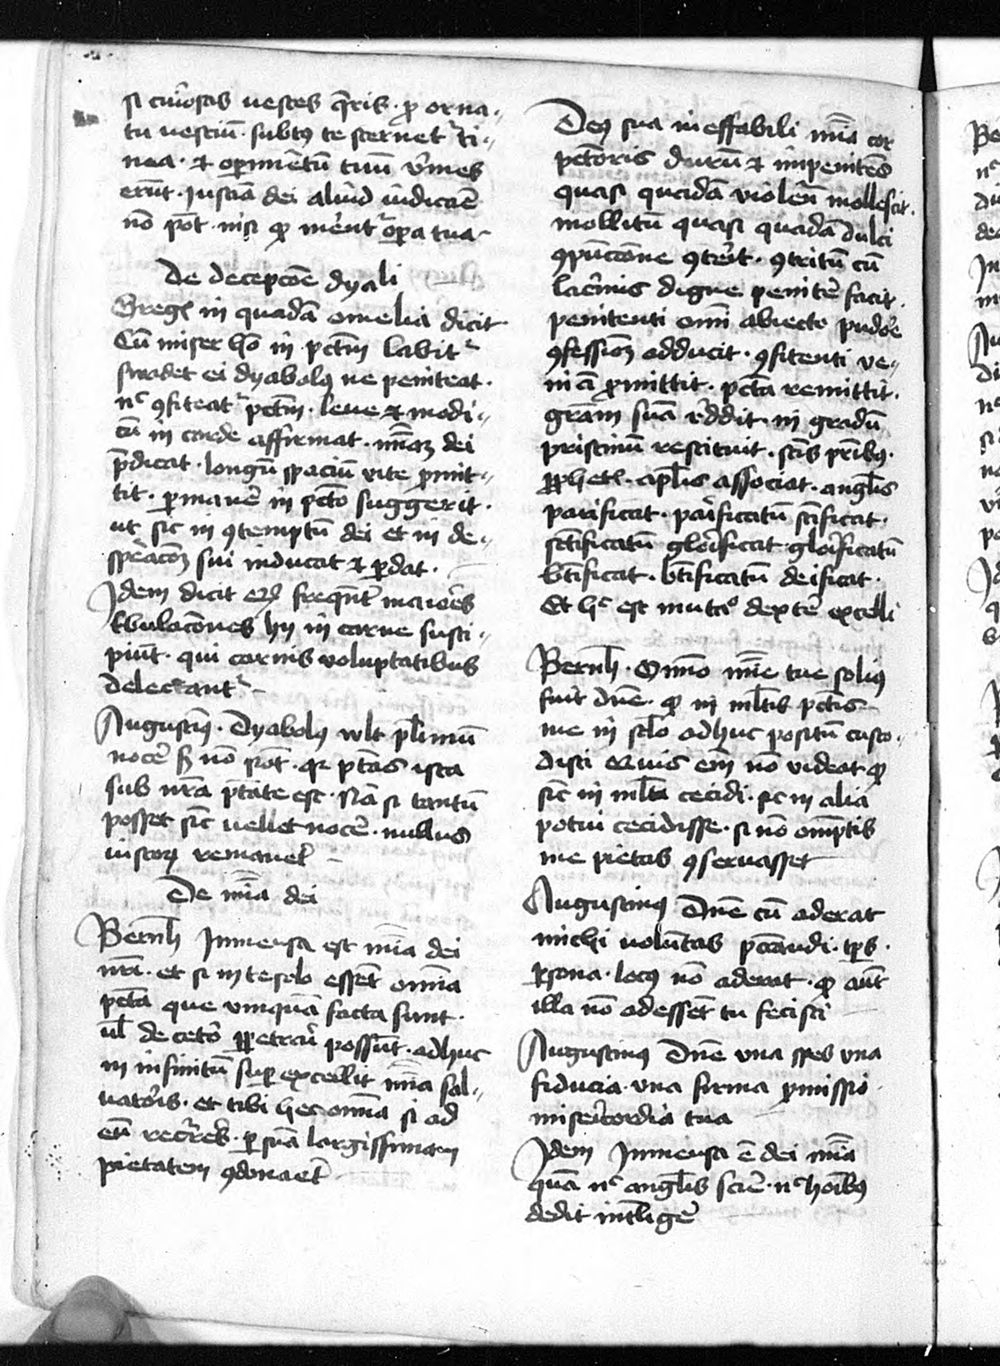 si curiosas uestes q̄ris · p̄ orna-
tu uestiū · subtꝰ te sternetᷣ ti-
nea · et operimētū tuū v̄mes
erūt · Iusticia dei aliud iudicare
nō pōt · nisi qđ merēt opa tua
De decepcōe dyaboli
Greg̃ in quadā omelia dicit
Cū miser hō in pctm̄ labitᷣ
suadet ei dyabolꝰ ne peniteat ·
nͨ ꝯfiteatᷣ pctm̄ · leue et modi-
cū in corde affirmat · mīaꝫ dei
p̄dicat · longū spaciū vite ꝓmit-
tit · pmanē in pctō suggerit ·
ut sic in ꝯtemptū dei et in de-
sperācōꝫ sui inducat et pdat ·
Idem dicit frequēt maiores
tͥbulacōnes hij in carne susti-
piūt · qui carnis voluptatibus
delectantᷣ
Augustinꝰ · Dyabolꝰ vult plīmū
nocē sꝫ nō pōt · qꝛ ptās ista
sub nrā ptāte est · Nā si tantū
posset sic uellet nocē · nullus
iustoꝝ remanēt
De mīa dei
Bernh̄ Inmensa est mīa dei
nrī · et si in te solo essēt omīa
pctā que vmquā facta sunt ·
ul̄ de ceto ꝑpetrari possūt · adhuc
in infinitū superexcellit mīa sal-
uatoris · et tibi hec omīa si ad
eū · p suā largissimam
pietatem ꝯdonaret
Deꝰ sua in effabili mīa cor
pctōris durū et inpenitēs
quasi quadā violen mollefacit ·
mollitū quasi quadā dulci
ꝯpūccōne ꝯterit · ꝯtritū cū
lacrimis digne penitē facit ·
penitenti omī abiecto pudore
ꝯfessionꝫ adducit · ꝯfitenti ve-
niā ꝓmittit · pctā remittit ·
grām suā reddit · in gradū
pristinū restituit · scīs prībꝰ ·
ꝓphetis · aplīs associat · anglīs
parificat · parificatū scīficat ·
scīficatū glorificat glorificatū
btīficat · btīficatū deificat ·
Et hͨ est mutacō dextē excelsi
Bernh̄ · Omīno mīe tue solius
fuit dn̄e · qđ in ml̄tis pctīs
me in sclō adhuc positū custo-
disti · enī nō videat qđ
sic in ml̄ta cecidi · sic in alia
potui cecidisse · si nō omptis
me pietas ꝯseruasset
Augustinꝰ Dn̄e cū aderat
michi volūtas pctandi · tps ·
psona · locꝰ nō aderat · qđ aūt
illa nō adessēt tu fecisti
Augustinꝰ Dn̄e vna spes vna
fiducia · vna firma ꝓmissio
misericordia tua
Idem Inmensa ē dei mīa
quā nͨ anglīs scirē · nͨ hoībꝰ
dedit intlligē